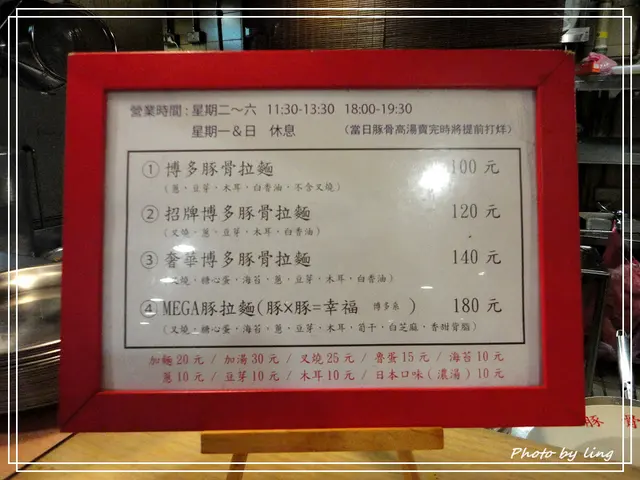 營業時間：星期二～六 11:30-13:30 18:00-19:30
星期一&日 休息 （當日豚骨高湯賣完時將提前打烊）
① 博多豚骨拉麵 100 元
（蔥，豆芽，木耳，白香油，不含叉燒）
② 招牌博多豚骨拉麵 120 元
（叉燒，蔥，豆芽，木耳，白香油）
③ 奢華博多豚骨拉麵 140 元
（叉燒，糖心蛋，海苔，蔥，豆芽，木耳，白香油）
④ MEGA豚拉麵(豚×豚=幸福 博多系 ) 180 元
（叉燒，糖心蛋，海苔，蔥，豆芽，木耳，筍干，白芝麻，香甜背脂）
加麵20元 / 加湯30元 / 叉燒25元 / 魯蛋15元 / 海苔10元
蔥10元 / 豆芽10元 / 木耳10元 / 日本口味(濃湯)10元
豚 骨
Photo by ling